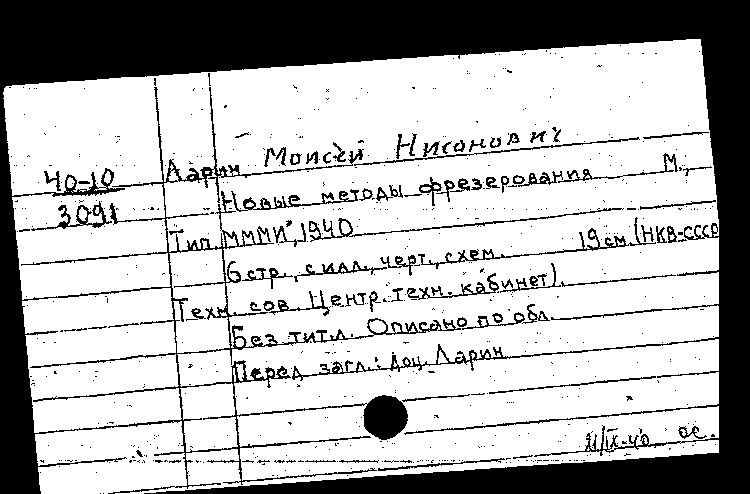 40-10
3091
Ларин, Моисей Нисанович
Новые методы фрезерования М.,
Тип. "МММИ", 1940
6 стр., с илл., черт., схем. 19 см. (НКВ-СССР
Техн. сов. Центр. техн. кабинет).
Без тит. л. Описано по обл.
Перед загл.: Доц. Ларин
/IX-40 ос.